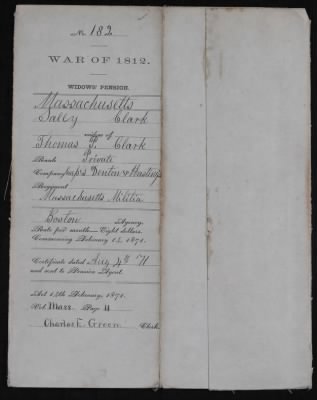 No. 182
WAR OF 1812.
WIDOWS' PENSION.
Massachusetts
Sally Clark
widow of
Thomas P. Clark
Rank Private
Company Capts Denton & Hastings
Regiment
Massachusetts Militia
Boston Agency.
Rate per month—Eight dollars.
Commencing February 14, 1871.
Certificate dated Aug 4th 71
and sent to Pension Agent.
Act 14th February, 1871.
Vol. Mass. Page 11
Charles E. Green Clerk.